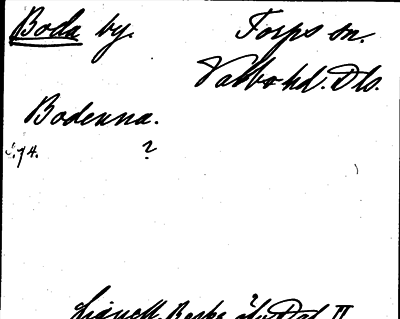 Boda by. Torps sn.
Valbo hd. Dls.
Bodenna.
s. 74. ?
Lignell, Beskr. öfv. Dal II